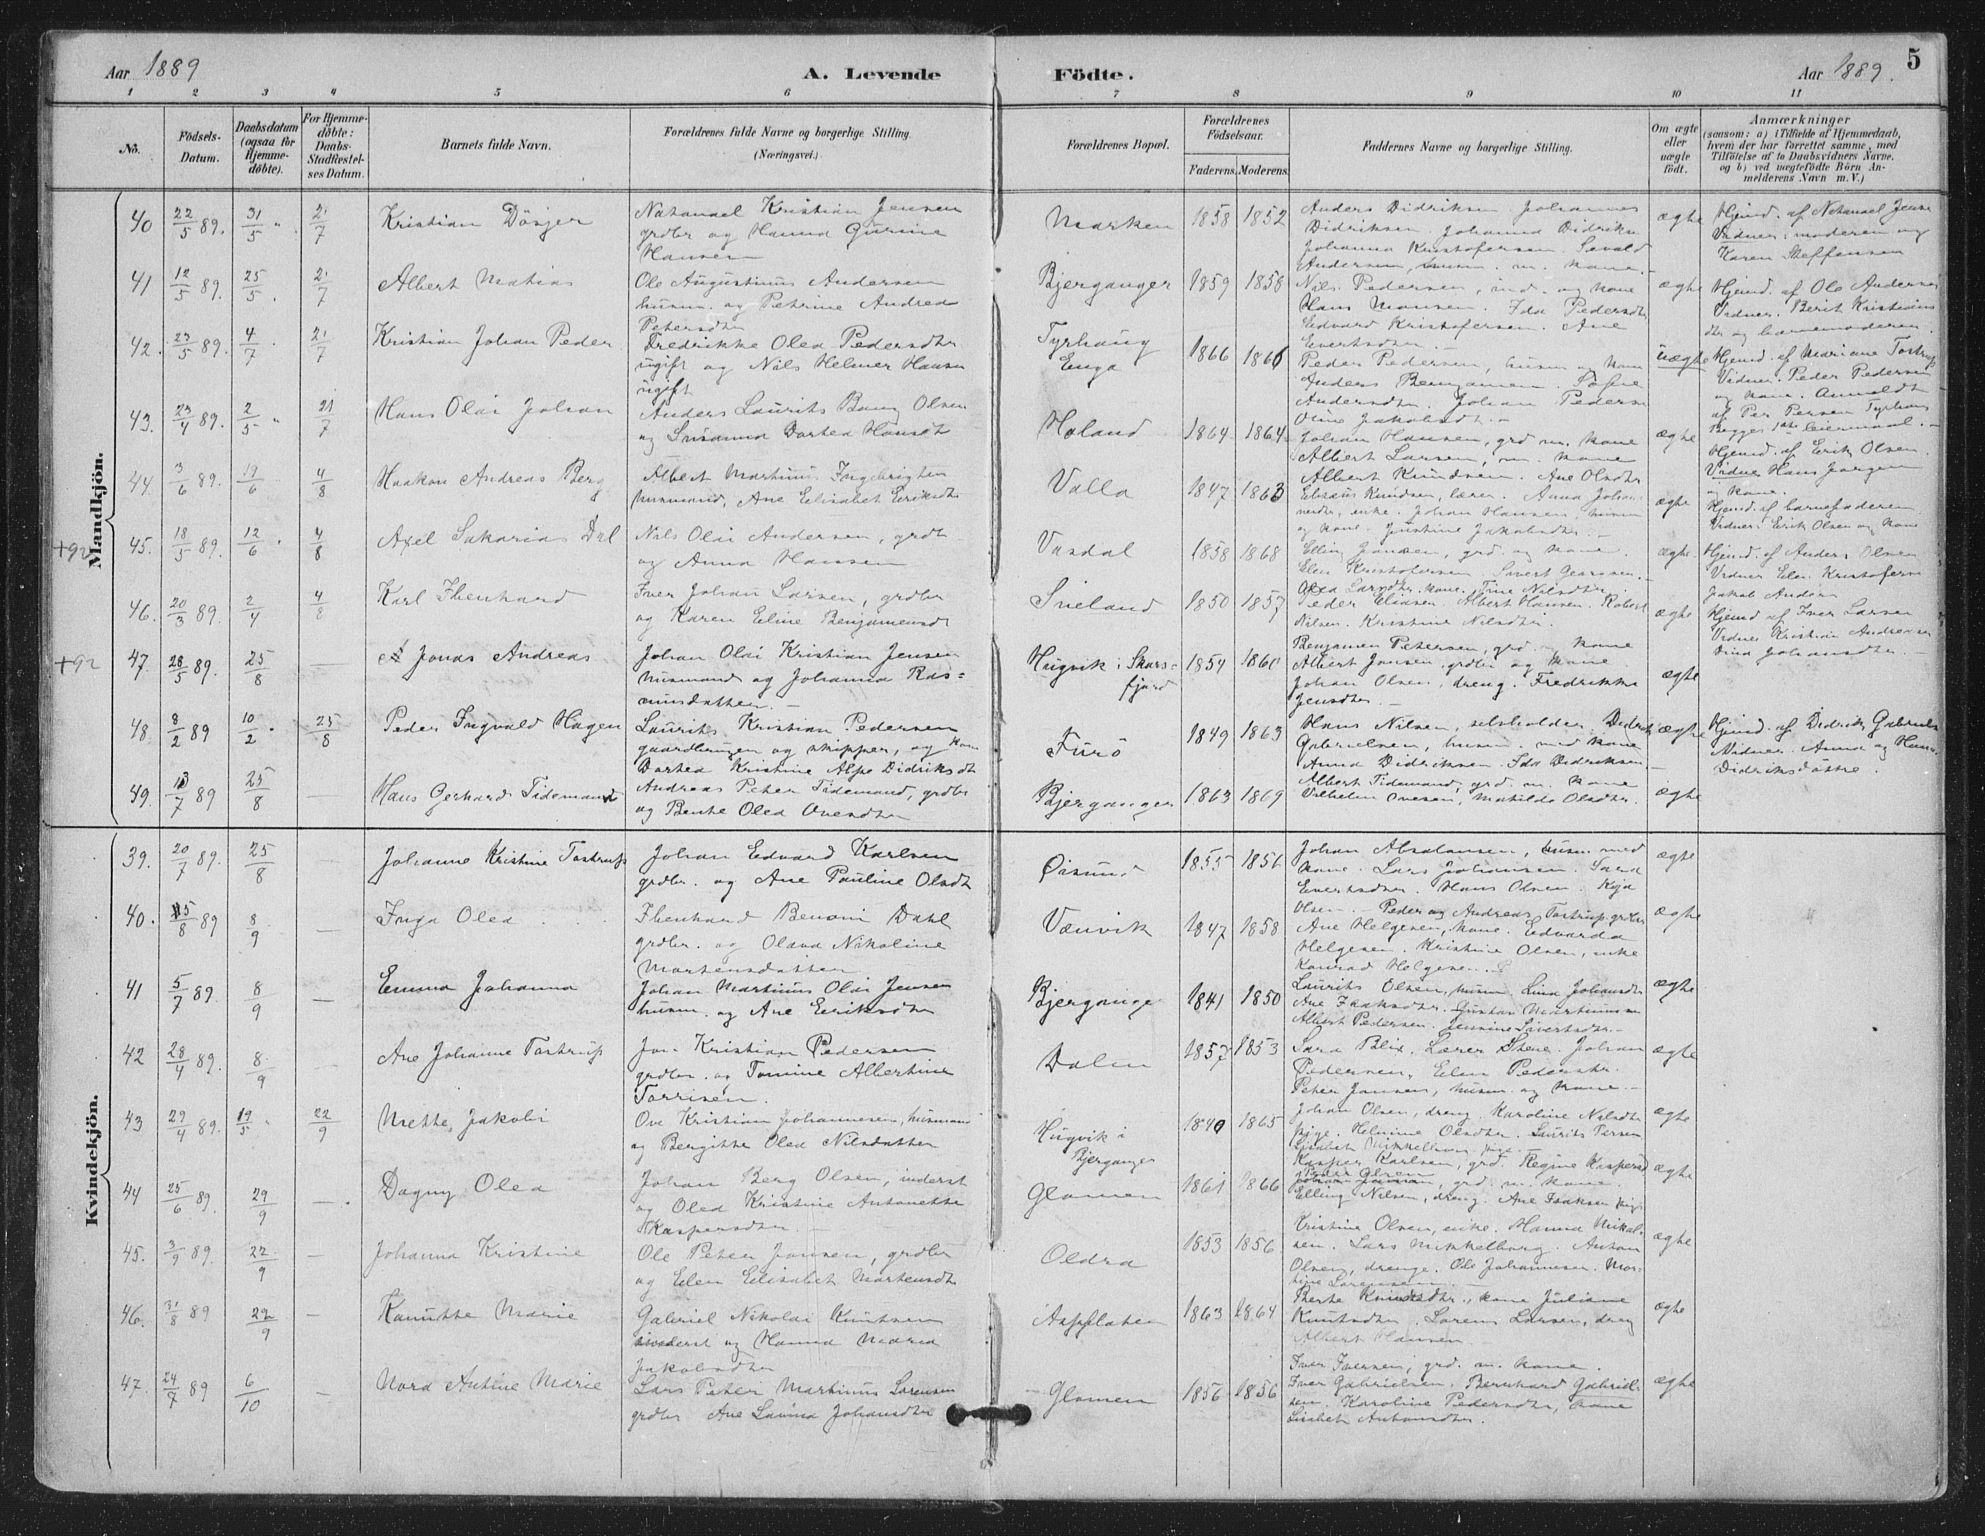 Aar 1889
A. Levende
Födte.
Aar 1889.
5
1 2 3 4 5 6 7 8 9 10 11
No.
Födsels-Datum.
Daabsdatum (ogsaa for Hjemme-döbte).
For Hjemme-döbte: Daabs-Stadfæstel-ses Datum.
Barnets fulde Navn.
Forældrenes fulde Navne og borgerlige Stilling.
(Næringsvei.)
Forældrenes Bopæl.
Forældrenes Födselsaar.
Faderens. Moderens.
Faddernes Navne og borgerlige Stilling.
Om ægte eller uægte födt.
Anmærkninger
(saasom: a) i Tilfælde af Hjemmedaab,
hvem der har forrettet samme, med
Tilföielse af to Daabsvidners Navne.
og b) ved uægtefödte Börn An-
melderens Navn m. V.)
Mandkjön.
40 22/5 89. 31/5 " 21/7 Kristian Dösjer
Natanael Kristian Jensen
grdbr og Hanna Gurine
Hansen
Marken 1858 1852
Anders Didriksen. Johannes
Didriksen. Johanna Didriks
Johanna Kristofersen. Sevald
Andersen, husm. m. kone.
ægte
Hjemd. af Natanael Jense
Vidner: moderen og
Karen Steffensen
41 12/5 89. 25/5. 21/7 Albert Matias
Ole Augustinus Andersen
husm. og Petrine Andrea
Petersdtr
Bjerganger 1859 1858
Nils Pedersen, ind. og kone
Hans Monsen. Ida Pedersdtr
Edvard Kristofersen. Ane
Evertsdtr.
ægte
Hjemd. af Ole Anders
Vidner. Berit Kristians
dtr og barnemoderen.
42. 23/5 89. 4/7. 21/7 Kristian Johan Peder
Fredrikke Olea Pedersdtr
ugift og Nils Helmer Hansen
ugift
Tyrhaug
Enga
1866 1866
Peder Pedersen, husm og kone
Anders Benjamen.
Andersdtr. Johan Peders
Oline Jakobsdtr.
uægte
Hjemd. af Mariane Tostrup
Vidner. Peder Pedersen
og kone. Anmeldt
af Per Persen Tyrhaug
Begges 1ste Leiermaal.
43. 23/4 89. 2/5 " 21/7 Hans Olai Johan
Anders Laurits Bang Olsen
og Susanna Dortea Hansdt
Høland 1864 1864
Johan Hansen, grd m. kone
Albert Larsen, m. kone
ægte
Hjemd. af Erik Olsen.
Vidner Hans Jørgen
og kone.
44. 3/6 89. 19/6 4/8 Haakon Andreas Berg
Albert Martinus Ingebrigtsen
husmand, Ane Elisabet Eriksdtr
Valla 1847 1863
Albert Knudsen. Ane Olsdtr
Elisæus Knudsen, lærer. Anna Johan-
nesdtr, enke. Johan Hansen, husm
og kone. Justine Jakobsdtr.
ægte
Hjemd. af barnefaderen
Vidner. Erik Olsen og kone
+92 45. 18/5 89. 12/6. 4/8 Axel Sakarias Dal
Nils Olai Andersen, grdb
og Anna Hansen
Vasdal 1858 1868
Elling Jonsen, grd og kone.
Elen Kristofersen. Sivert
Olea Larsdtr. kone. Trine Nilsdtr.
ægte.
Hjemd. af Anders Olsen
Vidner Elen Kristofers
Jakob Anders
46. 20/3 89. 2/4 4/8 Karl Ihenhard
Iver Johan Larsen, grdbr
og Karen Eline Benjamensdt
Sveland 1850 1857
Peder Eliasen. Albert Hansen. Robert
Nilsen. Kristine Nilsdtr.
ægte
Hjemd af Iver Larsen
Vidner Kristian Andreasen
Johansdtr.
+92 47. 28/5 89. 25/8 — Jonas Andreas
Johan Olai Kristian Jensen
husmand og Johanna Ras=
musdatter.
Hugvik i Skars=
fjord
1854 1860
Benjamen Petersen, grd. og kone
Albert Jonsen, grdbr og kone
Johan Olsen, dreng. Fredrikke
Jensdtr.
ægte
48. 8/2 89 10/2. 25/8 Peder Ingvald Hagen
Laurits Kristian Pedersen
gaardbruger og skipper, og kone
Dortea Kristine Alpe Didriksdt
Furö 1849 1863
Hans Nilsen, selsholder. Didrik
Gabrielsen, husm. med kone
Anna Didriksen. Ida Didriksen
ægte
Hjemd. af Didrik Gabriels
Vidner. Anna og Hans
Didriksdøttre.
49. 13/7 89 25/8 — Hans Gerhard Tidemand
Andreas Peter Tidemand, grdbr
og Bente Olea Ovesdtr
Bjerganger 1863 1869
Albert Tidemand, grd. m. kone
Vilhelm Ovesen, Matilde Olsdtr.
ægte
Kvindekjön.
39. 20/7 89. 25/8 — Johanne Kristine Tostrup
Johan Edvard Karlsen
grdbr. og Ane Pauline Olsdt
Öisund 1855 1856
Johan Absalonsen, husm. med
kone. Lars Johansen. Sara
Evertsdtr. Hans Olsen. Kaja
Olsen. Peder og Andreas Tostrup, grdbr
ægte
40. 15/8 89 8/9 — Inga Olea
Ihenhard Benoni Dahl
grdbr. og Olava Nikoline
Mortensdatter
Vænvik 1847 1858
Ane Helgesen, kone. Edvarda
Helgesen. Kristine Olsen, enke
Konrad Helgesen.
ægte
41 5/7 89. 8/9 — Emma Johanna
Johan Martinus Olai Jensen
husm. og Ane Eriksdtr
Bjergange 1841 1850
Laurits Olsen, husm. Lina Johansdtr
Ane Isaksdtr. Gustav Martinussen
Albert Pedersen. Jensine Sivertsdtr.
ægte
42 28/4 89. 8/9 Ane Johanne Tostrup
Jon Kristian Pedersen
grdbr. og Tomine Albertine
Torrisen.
Dalen 1857 1853
Sara Blix. Lærer Stene. Johan
Pedersen, Elen Pedersdtr.
Peter Jonsen, husm. og kone.
ægte
43 29/4 89. 19/5 " 22/9 Mette Jakobi
Ove Kristian Johannesen, husmand
og Bergitte Olea Nilsdatter
Hugvik i
Bjerganger
1840 1865
Johan Olsen, dreng. Karoline Nilsdtr
pige. Helmine Olsdtr. Laurits Persen
Mikkelborg, pige.
ægte
44 25/6 89. 29/9 — Dagny Olea
Johan Berg Olsen, inderst
og Olea Kristine Antonette
Kaspersdtr.
Glomen 1861 1866
Kasper Karlsen, grd. Regine Kaspersd
Peder Olsen
grd. m. kone.
Elling Nilsen, dreng. Ane Isaksen pige
ægte
45. 3/9 89. 22/9 — Johanna Kristine
Ole Peter Jonsen, grdbr
og Elen Elisabet Mortensdtr
Oldra 1853 1856
Kristine Olsen, enke. Hanna Mikal-
sen. Lars Mikkelborg. Anton
Olsen, drenge. Ole Johannesen. Mar-
tine Lorensen.
ægte
46. 31/8 89 22/9 — Kanutte Marie
Gabriel Nikolai Knutsen
inderst og Hanna Maria
Jakobsdtr
Aspflaten 1863 1864
Berte Knudsdtr., kone Juliane
Knutsdtr. Lorens Larsen, dreng
Albert Hansen
ægte
47. 24/7 89 6/10 — Nora Antine Marie
Lars Peter Martinus Sørensen
grdbr Ane Lovina Johansdtr
Glomen 1856 1856
Iver Iversen, grd. m. kone.
Iver Gabrielsen. Bernhard Gabriel-
sen. Karoline Pedersdtr, kone
Lisbet Antonsdtr.
ægte